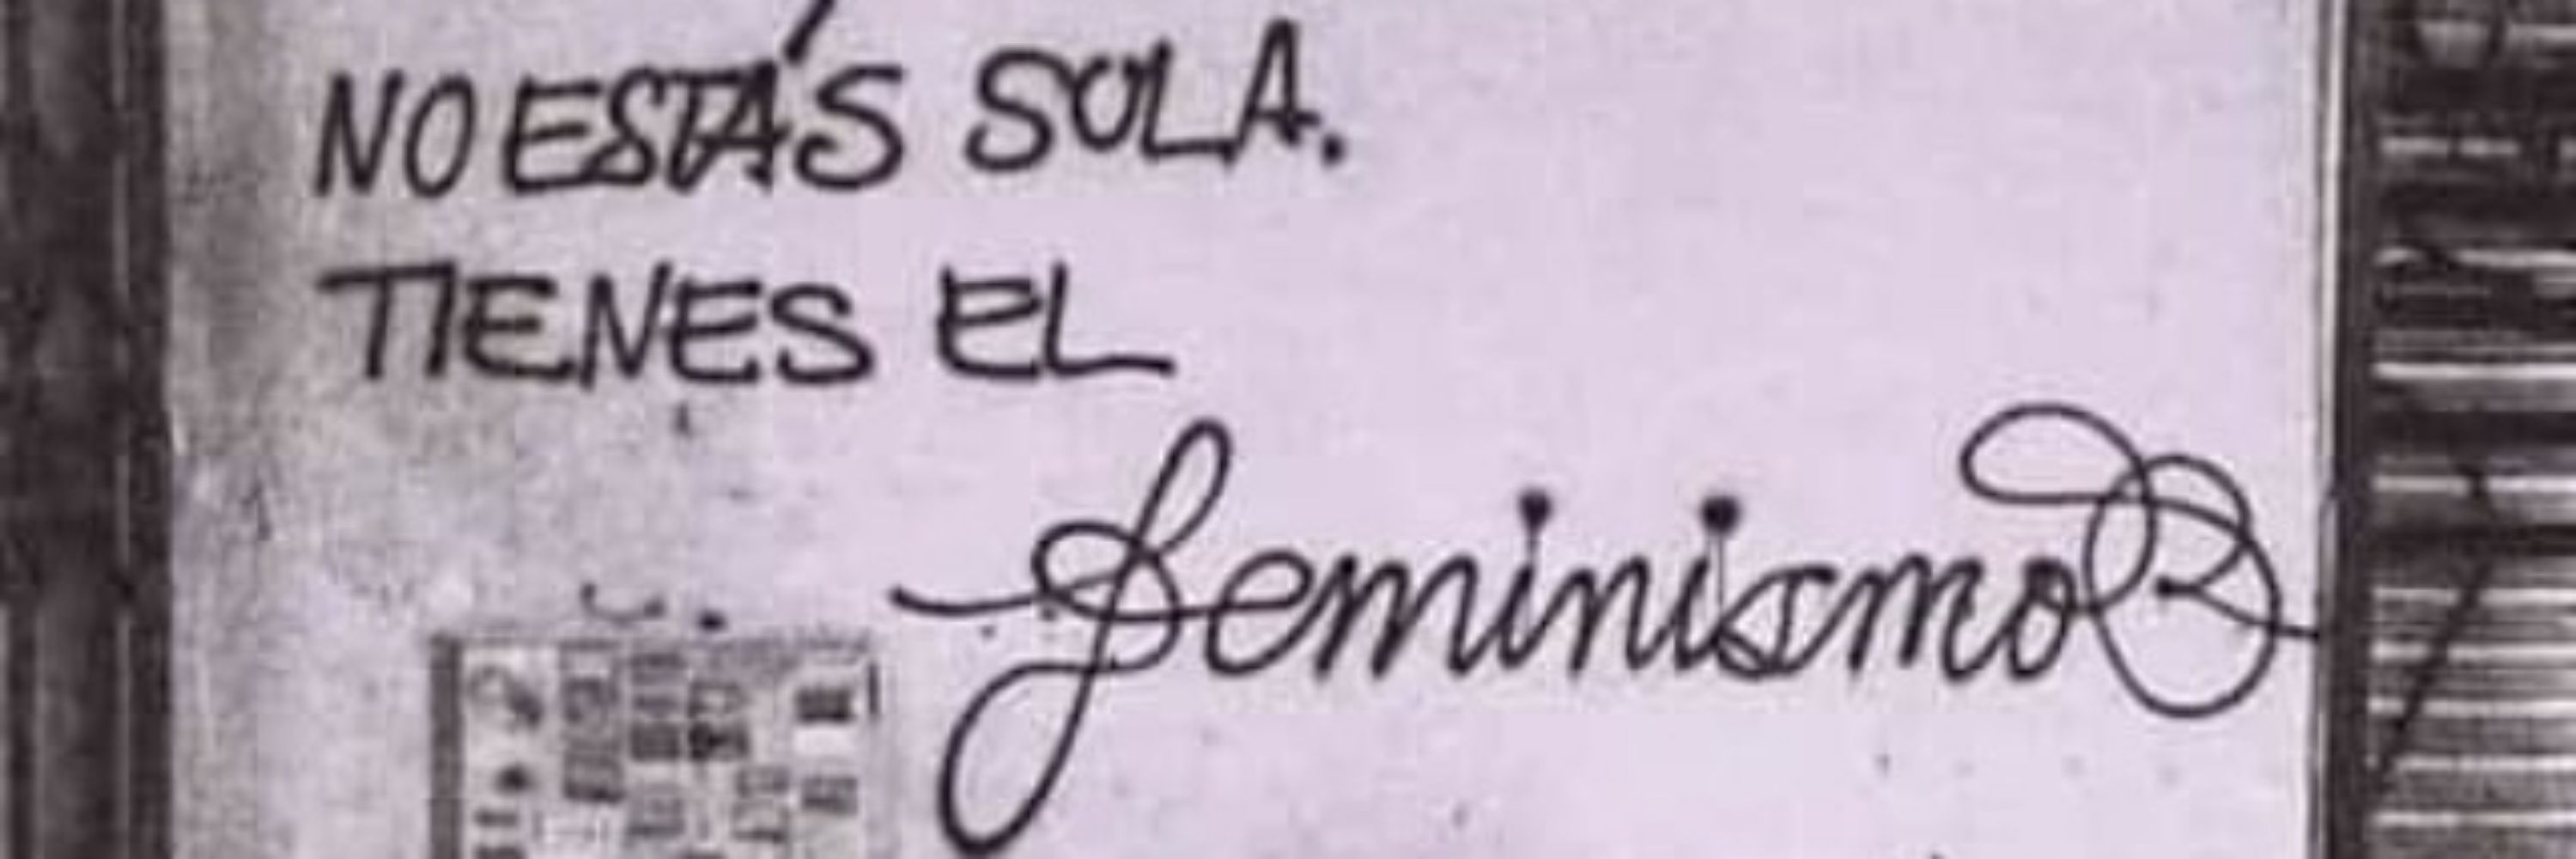 NO ESTÁS SOLA.
TIENES EL
feminismo